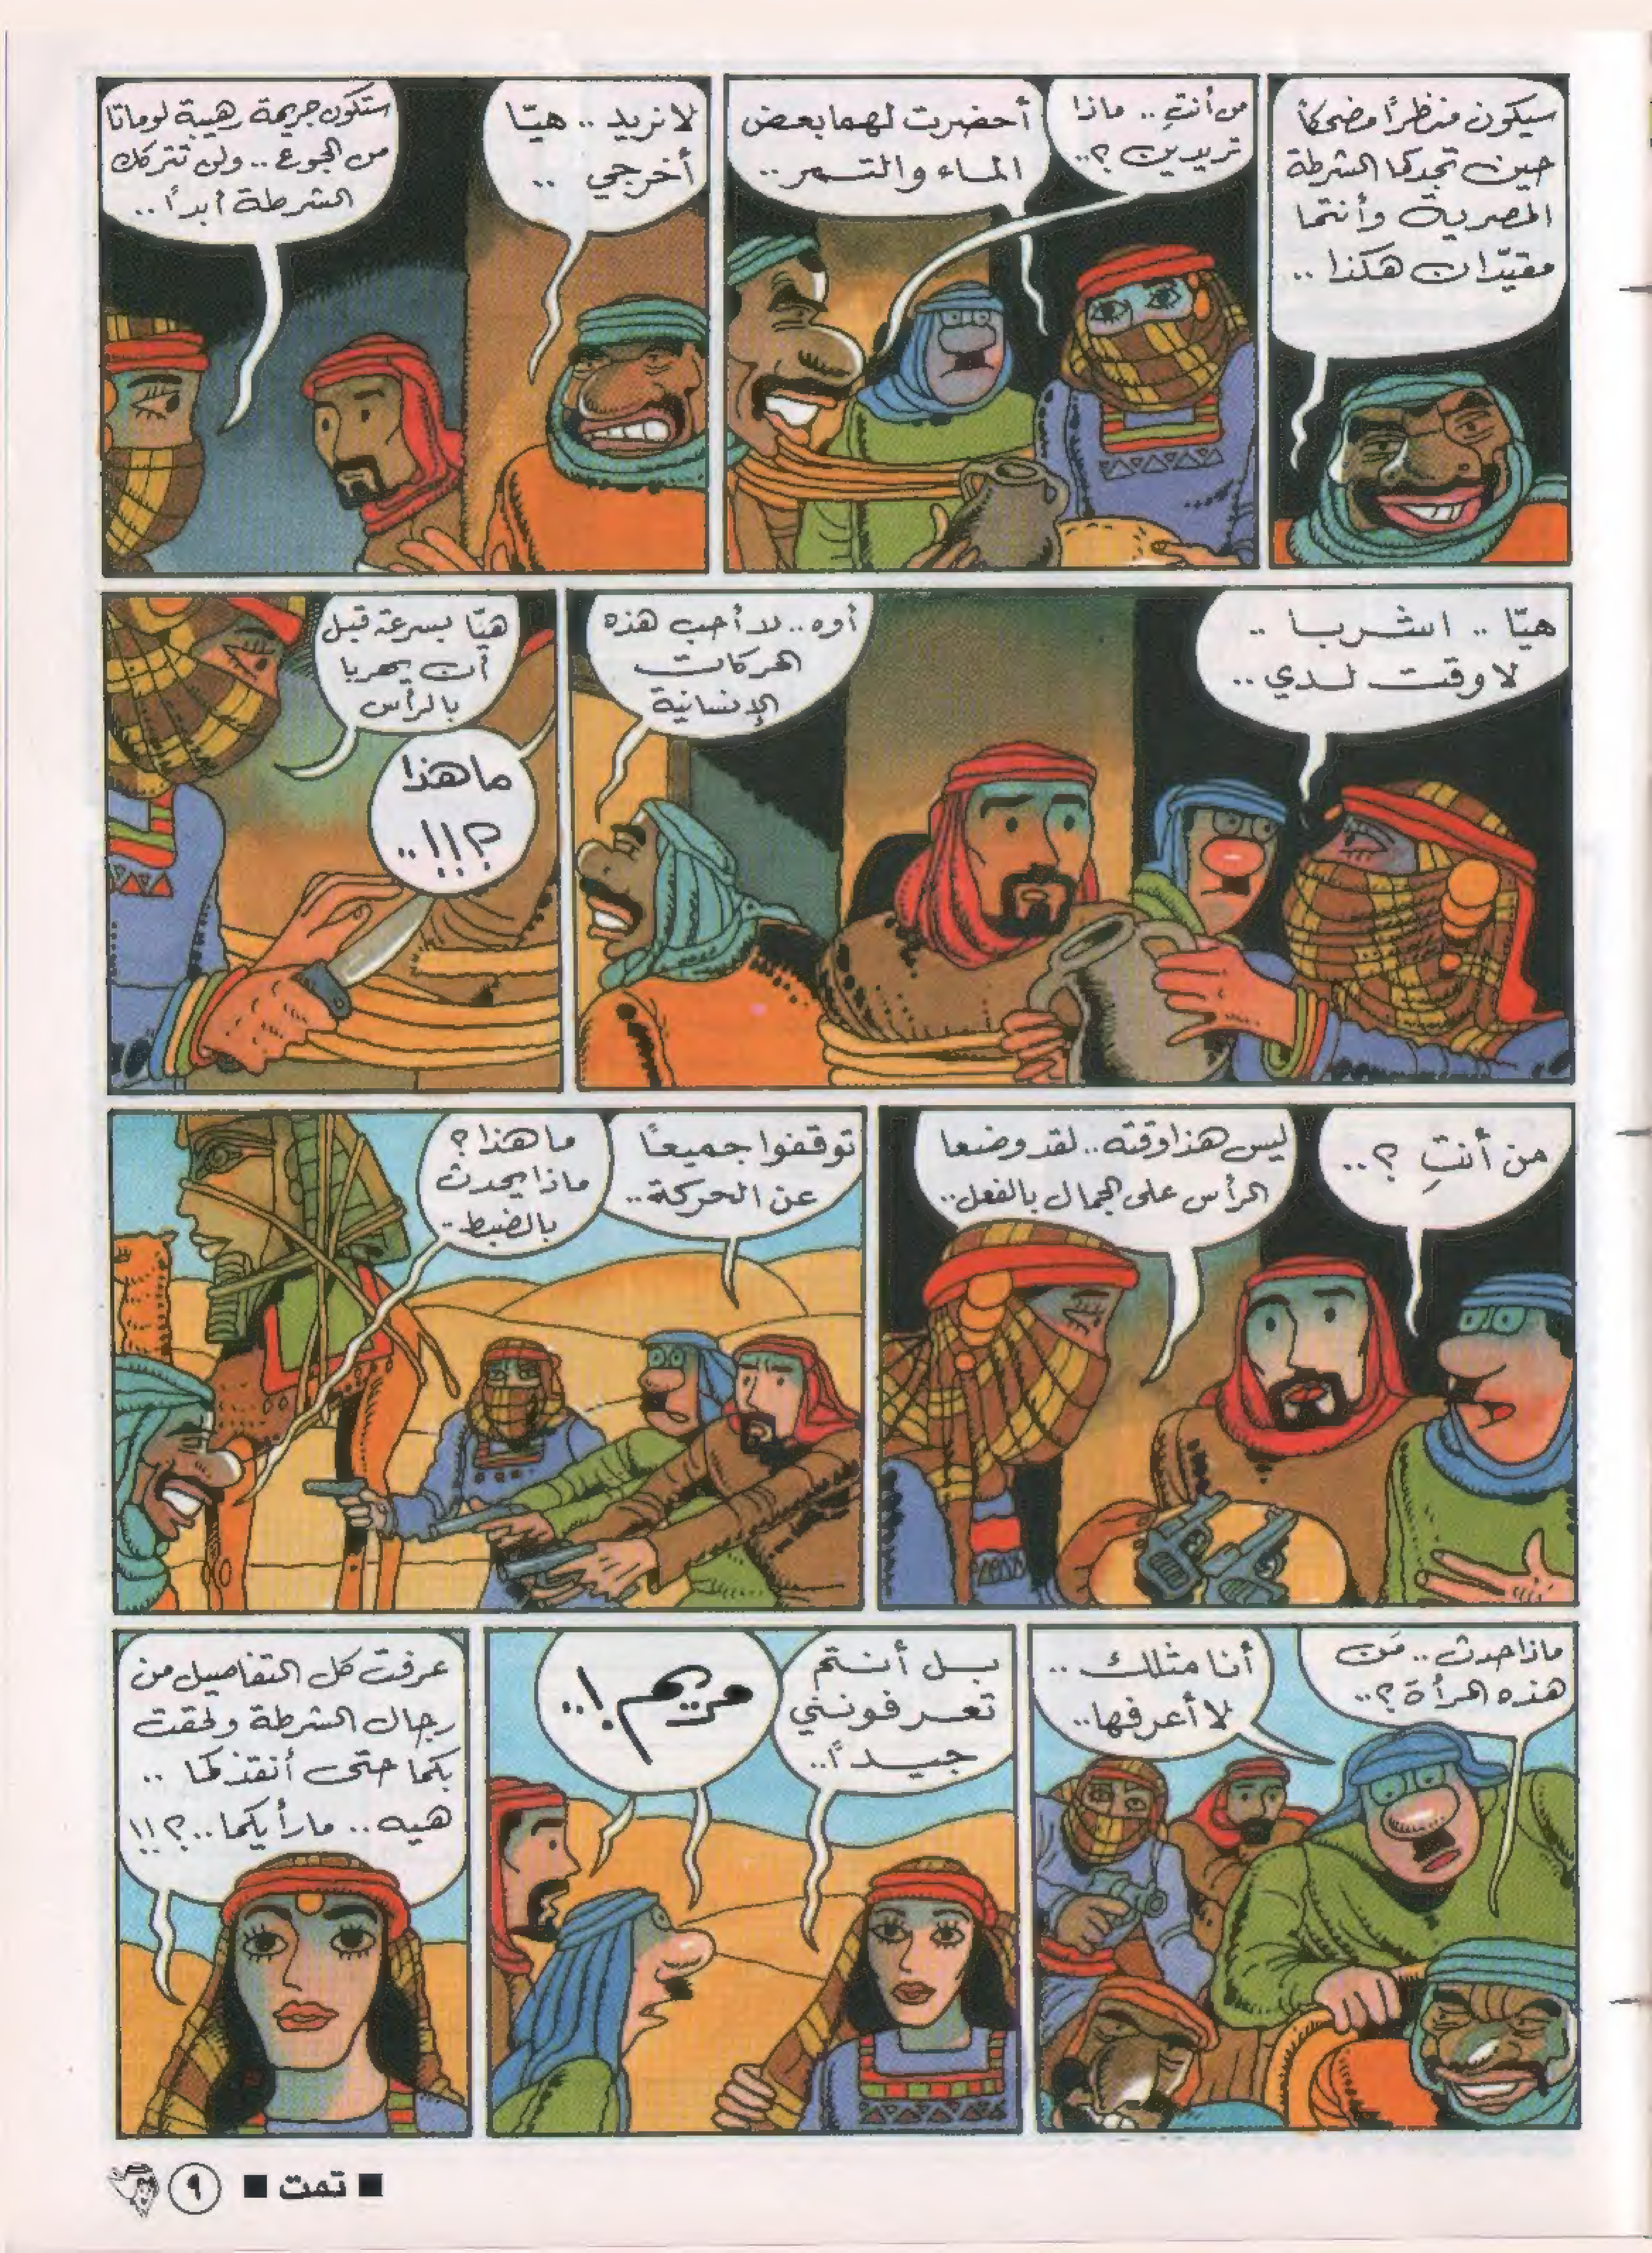 سيكون منظرًا مضحكًا
حين تجدكما الشرطة
المصرية وأنتما
مقيّدان هكذا ..
من أنتِ .. ماذا
تريدين ؟..
أحضرت لهما بعض
الماء والتمر ..
لا نريد .. هيّا
أخرجي ..
ستكون جريمة رهيبة لو ماتا
من الجوع .. ولن تتركك
الشرطة أبدًا ..
هيّا .. اشربا ..
لا وقت لدي ..
أوه .. لا أحب هذه
الحركات
الإنسانية
هيّا بسرعة قبل
أن يهربا
بالرأس
ما هذا
؟!!..
من أنتِ ؟..
ليس هذا وقته .. لقد وضعا
الرأس على الجمال بالفعل ..
توقفوا جميعًا
عن الحركة ..
ما هذا ؟
ماذا يحدث
بالضبط ..
ماذا حدث .. مَن
هذه المرأة ؟..
أنا مثلك ..
لا أعرفها ..
بل أنتم
تعرفونني
جيدًا ..
مريم !..
عرفت كل التفاصيل من
رجال الشرطة ولحقت
بكما حتى أنقذكما ..
هيه .. ما رأيكما ..؟!!
■ تمت ■ ٩